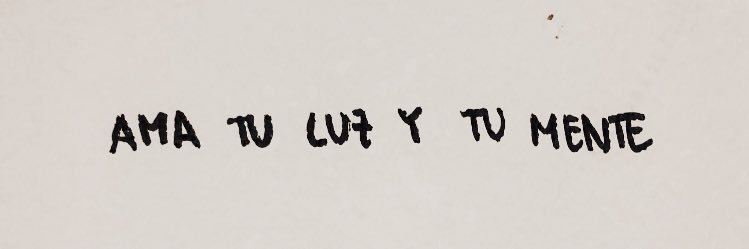 AMA TU LUZ Y TU MENTE